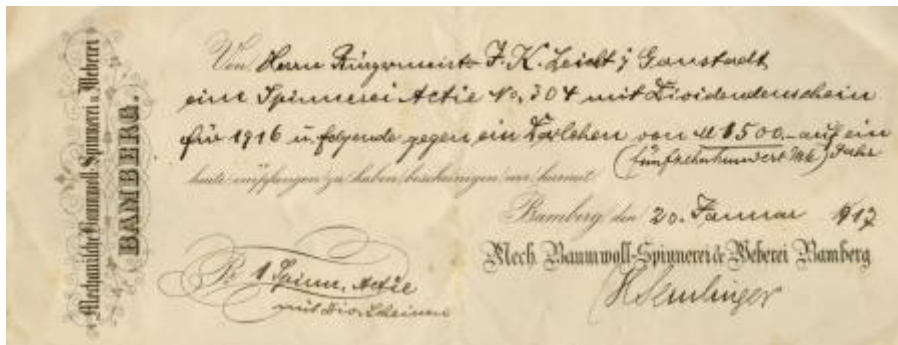 Mechanische Baumwoll-Spinnerei u. Weberei
BAMBERG.
Von Herrn Bürgermeister F. K. Leicht, Gaustadt
eine Spinnerei Actie No. 304 mit Dividendenschein
für 1916 u. folgende gegen ein Darlehen von M 1500.– auf ein
(fünfzehnhundert Mk) Jahr
heute empfangen zu haben, bescheinigen wir hiermit
Bamberg, den 20. Januar 1917
Mech. Baumwoll-Spinnerei & Weberei Bamberg
1 Spinn. Actie
mit Div. Scheinen
Semlinger